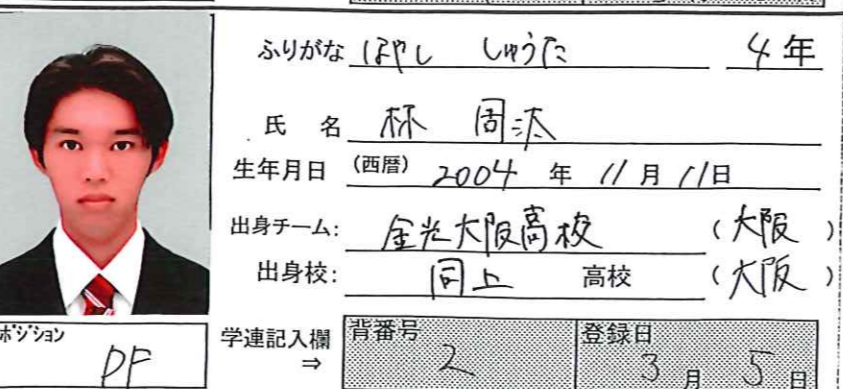 ふりがな はやし しゅうた 4年
氏 名 林 周汰
生年月日 (西暦) 2004 年 11月 11日
出身チーム: 金光大阪高校 (大阪)
出身校: 同上 高校 (大阪)
ポジション DF
学連記入欄 ⇒ 背番号 2 登録日 3月 5日